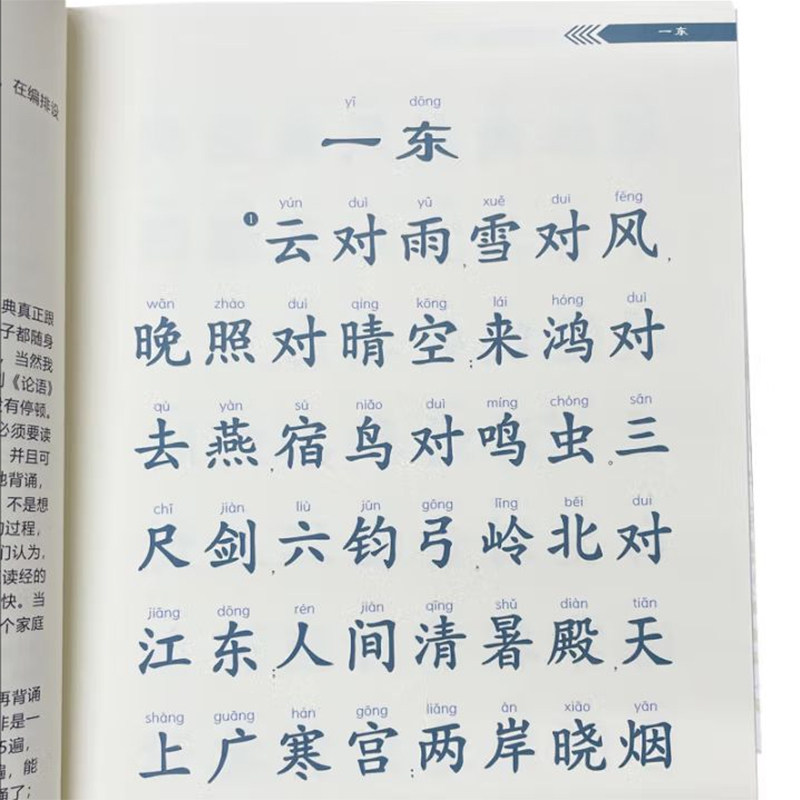 在编排设
典真正跟
子都随身
，当然我
《论语》
没有停顿。
必须要读
并且可
地背诵，
不是想
的过程，
们认为，
读经的
快。当
个家庭
再背诵
非是一
5遍，
遍，能
诵了；
一东
yī dōng
一东
yún duì yǔ xuě duì fēng
1 云对雨，雪对风，
wǎn zhào duì qíng kōng lái hóng duì
晚照对晴空；来鸿对
qù yàn sù niǎo duì míng chóng sān
去燕，宿鸟对鸣虫。三
chǐ jiàn liù jūn gōng lǐng běi duì
尺剑，六钧弓，岭北对
jiāng dōng rén jiān qīng shǔ diàn tiān
江东；人间清暑殿，天
shàng guǎng hán gōng liǎng àn xiǎo yān
上广寒宫；两岸晓烟